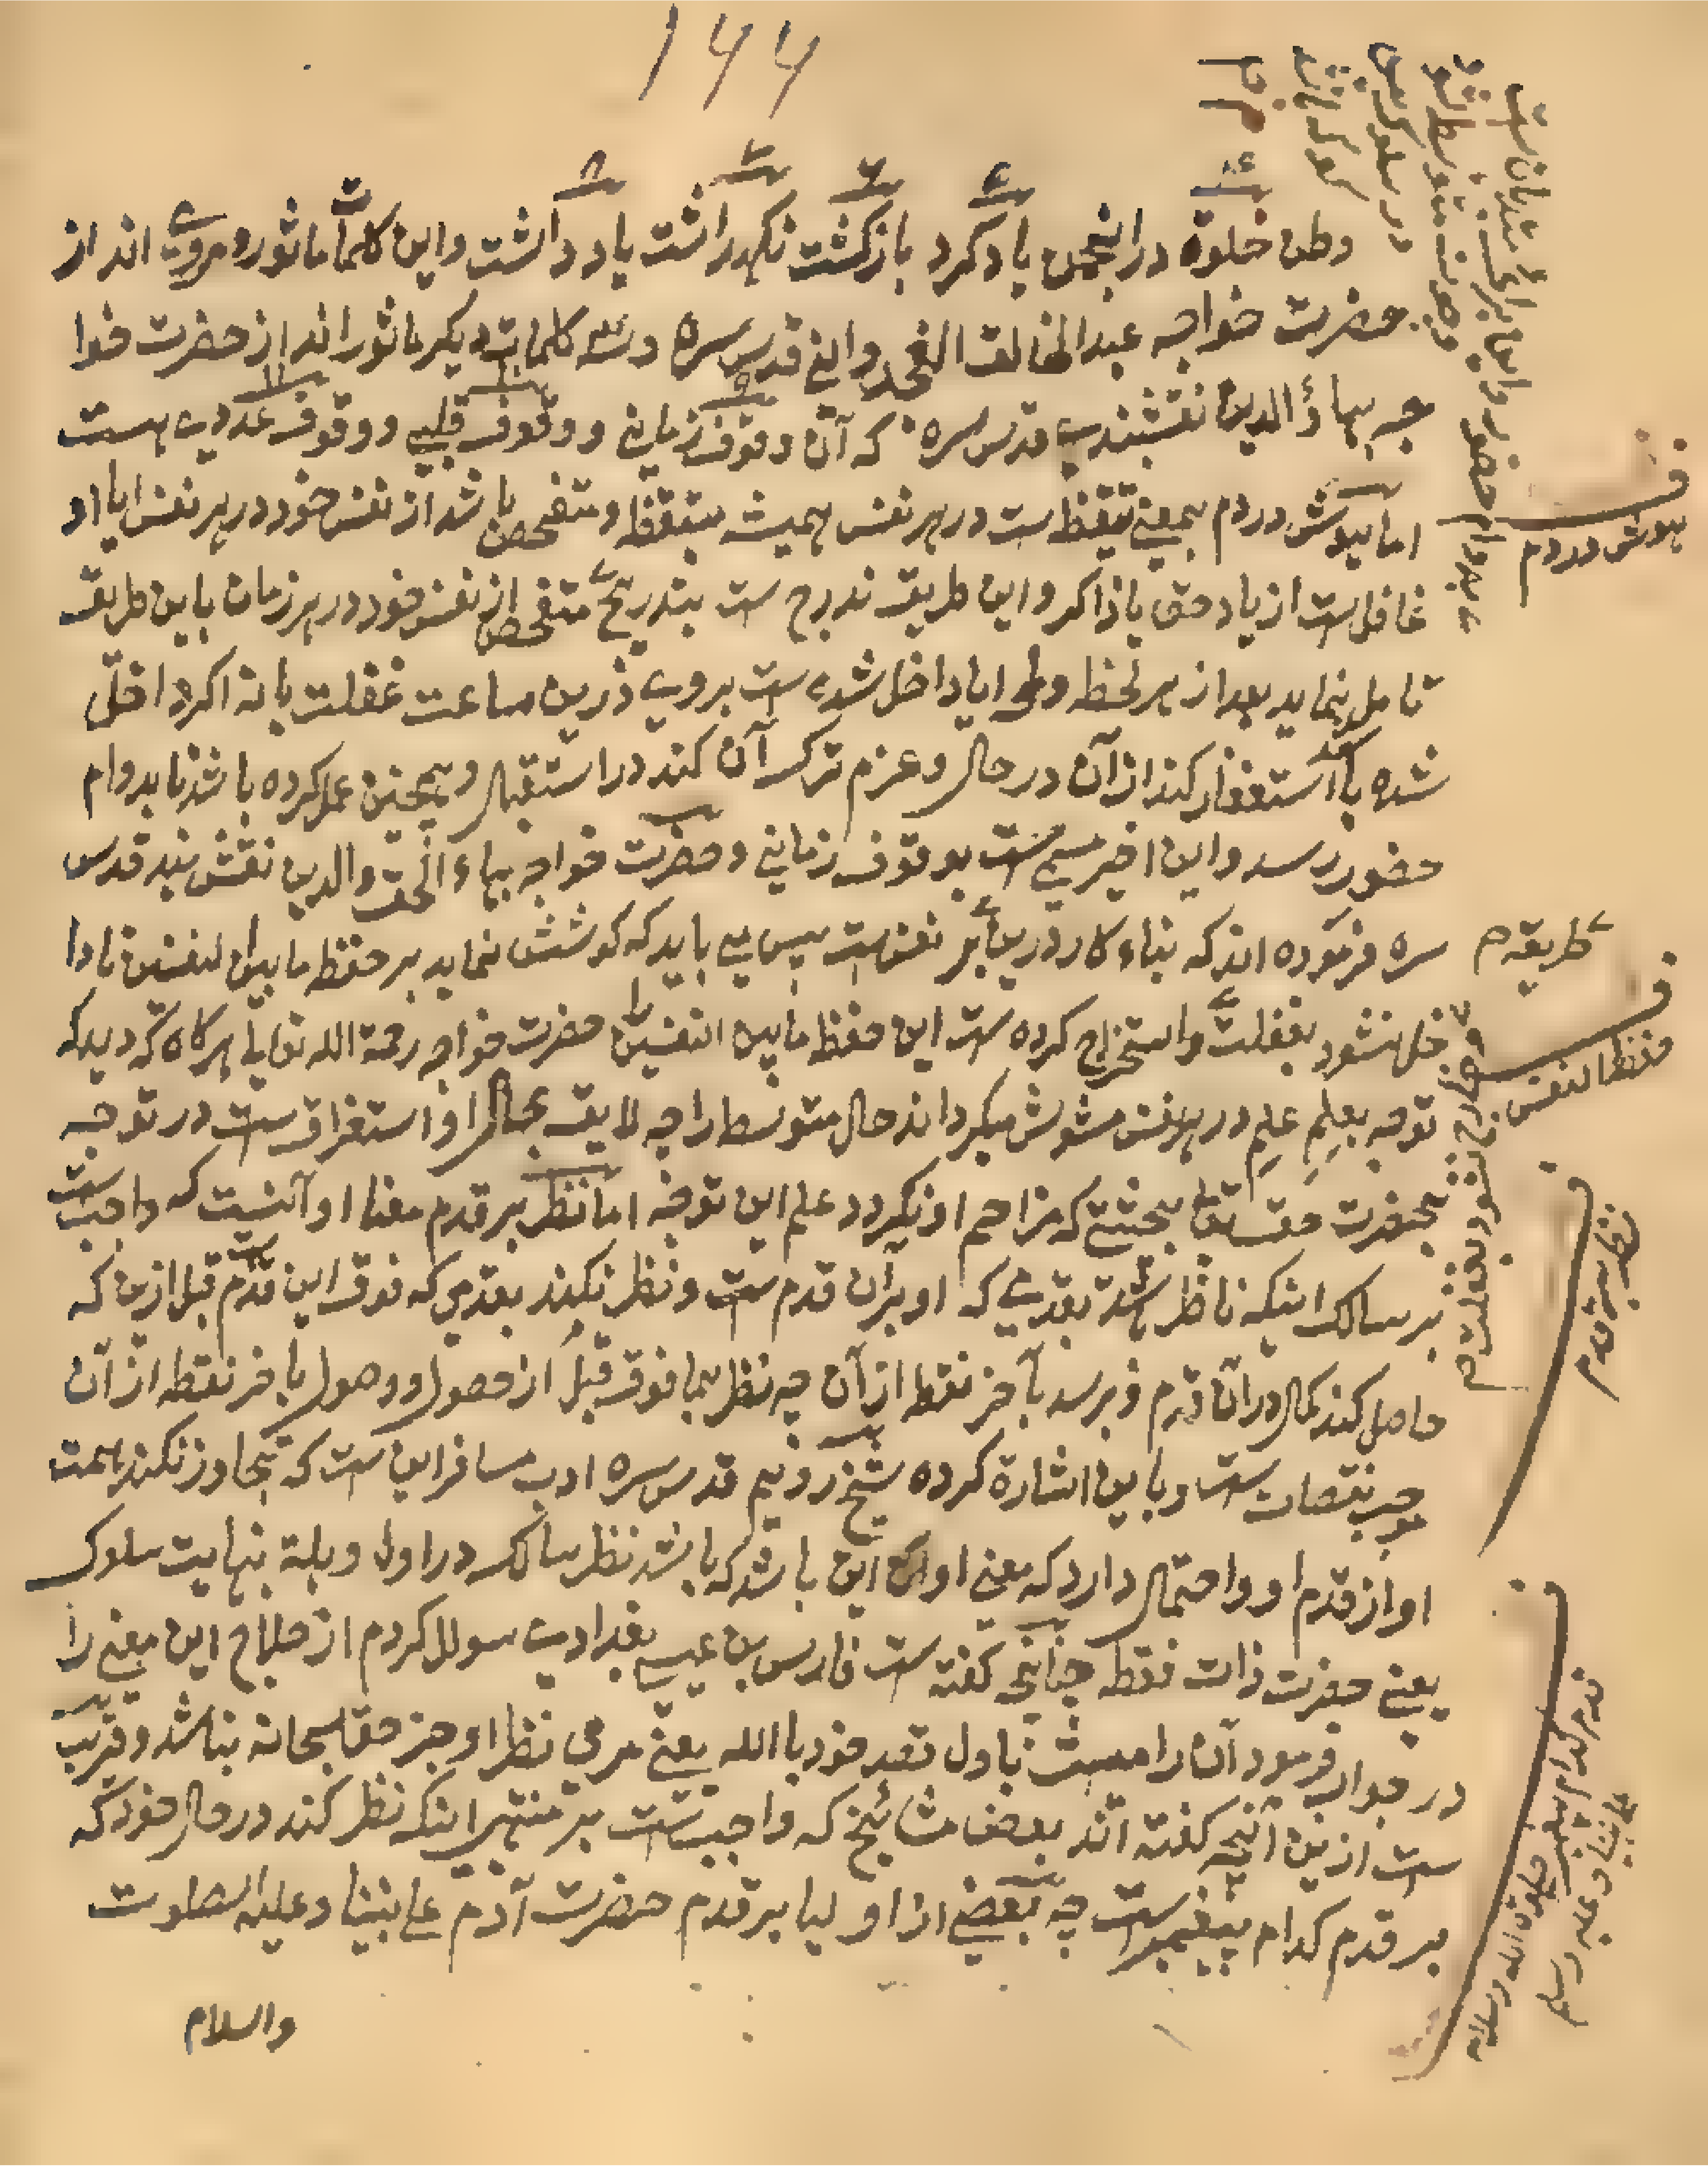 ۱۶۶
وطن خلوة در انجمن یاد کرد بازگشت نگهداشت یاد داشت و این کلمات ماثوره مروی اند از
حضرت خواجه عبد الخالق الغجدوانی قدس سره و سه کلمات دیگر ماثور اند از حضرت خوا
جه بهاؤ الدین نقشبندی قدس سره که آن وقوف زمانی و وقوف قلبی و وقوف عددی هست
اما هوش در دم بمعنی تیقظ ست در هر نفس همیشه متیقظ و متفحص باشد از نفس خود در هر نفس ایا او
غافل ست از یاد حق یا ذاکر و این طریق تدرج ست بتدریج متفحص از نفس خود در هر زمان باین طریق
تامل نماید بعد از هر لحظه و لمحه ایا داخل شده ست بروی درین ساعت غفلت یا نه اگر داخل
شده باشد استغفار کند از آن در حال و عزم ترک آن کند در استقبال و همچنین عمل کرده باشد تا بدوام
حضور رسد و این اخیر مسمی ست بوقوف زمانی و حضرت خواجه بهاء الحق والدین نقش بند قدس
سره فرموده اند که بناء کار درین بر نفس ست پس می باید که کوشش نماید بر حفظ ما بین النفسین تا دا
خل نشود بغفلت و استخراج کرده ست این حفظ ما بین النفسین حضرت خواجه رحمة الله تعالی هرگاه که دید که
توجه بعلم علم در هر نفس مشوش میگرداند حال متوسط را چه لایق بحال او استغراق ست در توجه
بحضرت حق تعالی بحیثیتی که مزاحم او نگردد علم این توجه اما نظر بر قدم معنا او آنست که واجب ست
بر سالک اینکه ناظر باشد بقدمی که او بر آن قدم ست و نظر نکند بقدمی که فوق این قدم قبل ازین که
حاصل کند کمال در آن قدم و برسد بآخر نقطه از آن چه نظر بما فوق قبل از حصول و وصول بآخر نقطه از آن
موجب نقصان ست و باین اشارة کرده شیخ رویم قدس سره ادب مسافر این ست که تجاوز نکند همت
او از قدم او و احتمال دارد که معنی او این باشد که باشد نظر سالک در اول وهلة نهایت سلوک
یعنی حضرت ذات فقط چنانچه گفته ست فارس بن عیسی بغدادی سوال کردم از حلاج این معنی را
در جواب فرمود آن رامیست باول قصد خود با الله یعنی مرمی نظر او جز حق سبحانه نباشد و قریب
ست ازین آنچه گفته اند بعض مشائخ که واجب ست بر منتهی اینکه نظر کند در حال خود که
بر قدم کدام پیغمبر ست چه بعضی از اولیا بر قدم حضرت آدم علی نبینا و علیه الصلوت
والسلام
هوش در دم
طریقه م
حفظ النفس
نظر بر قدم
قدم کدام پیغمبر صلوة الله وسلامه
علی نبینا وعلیه وسلم